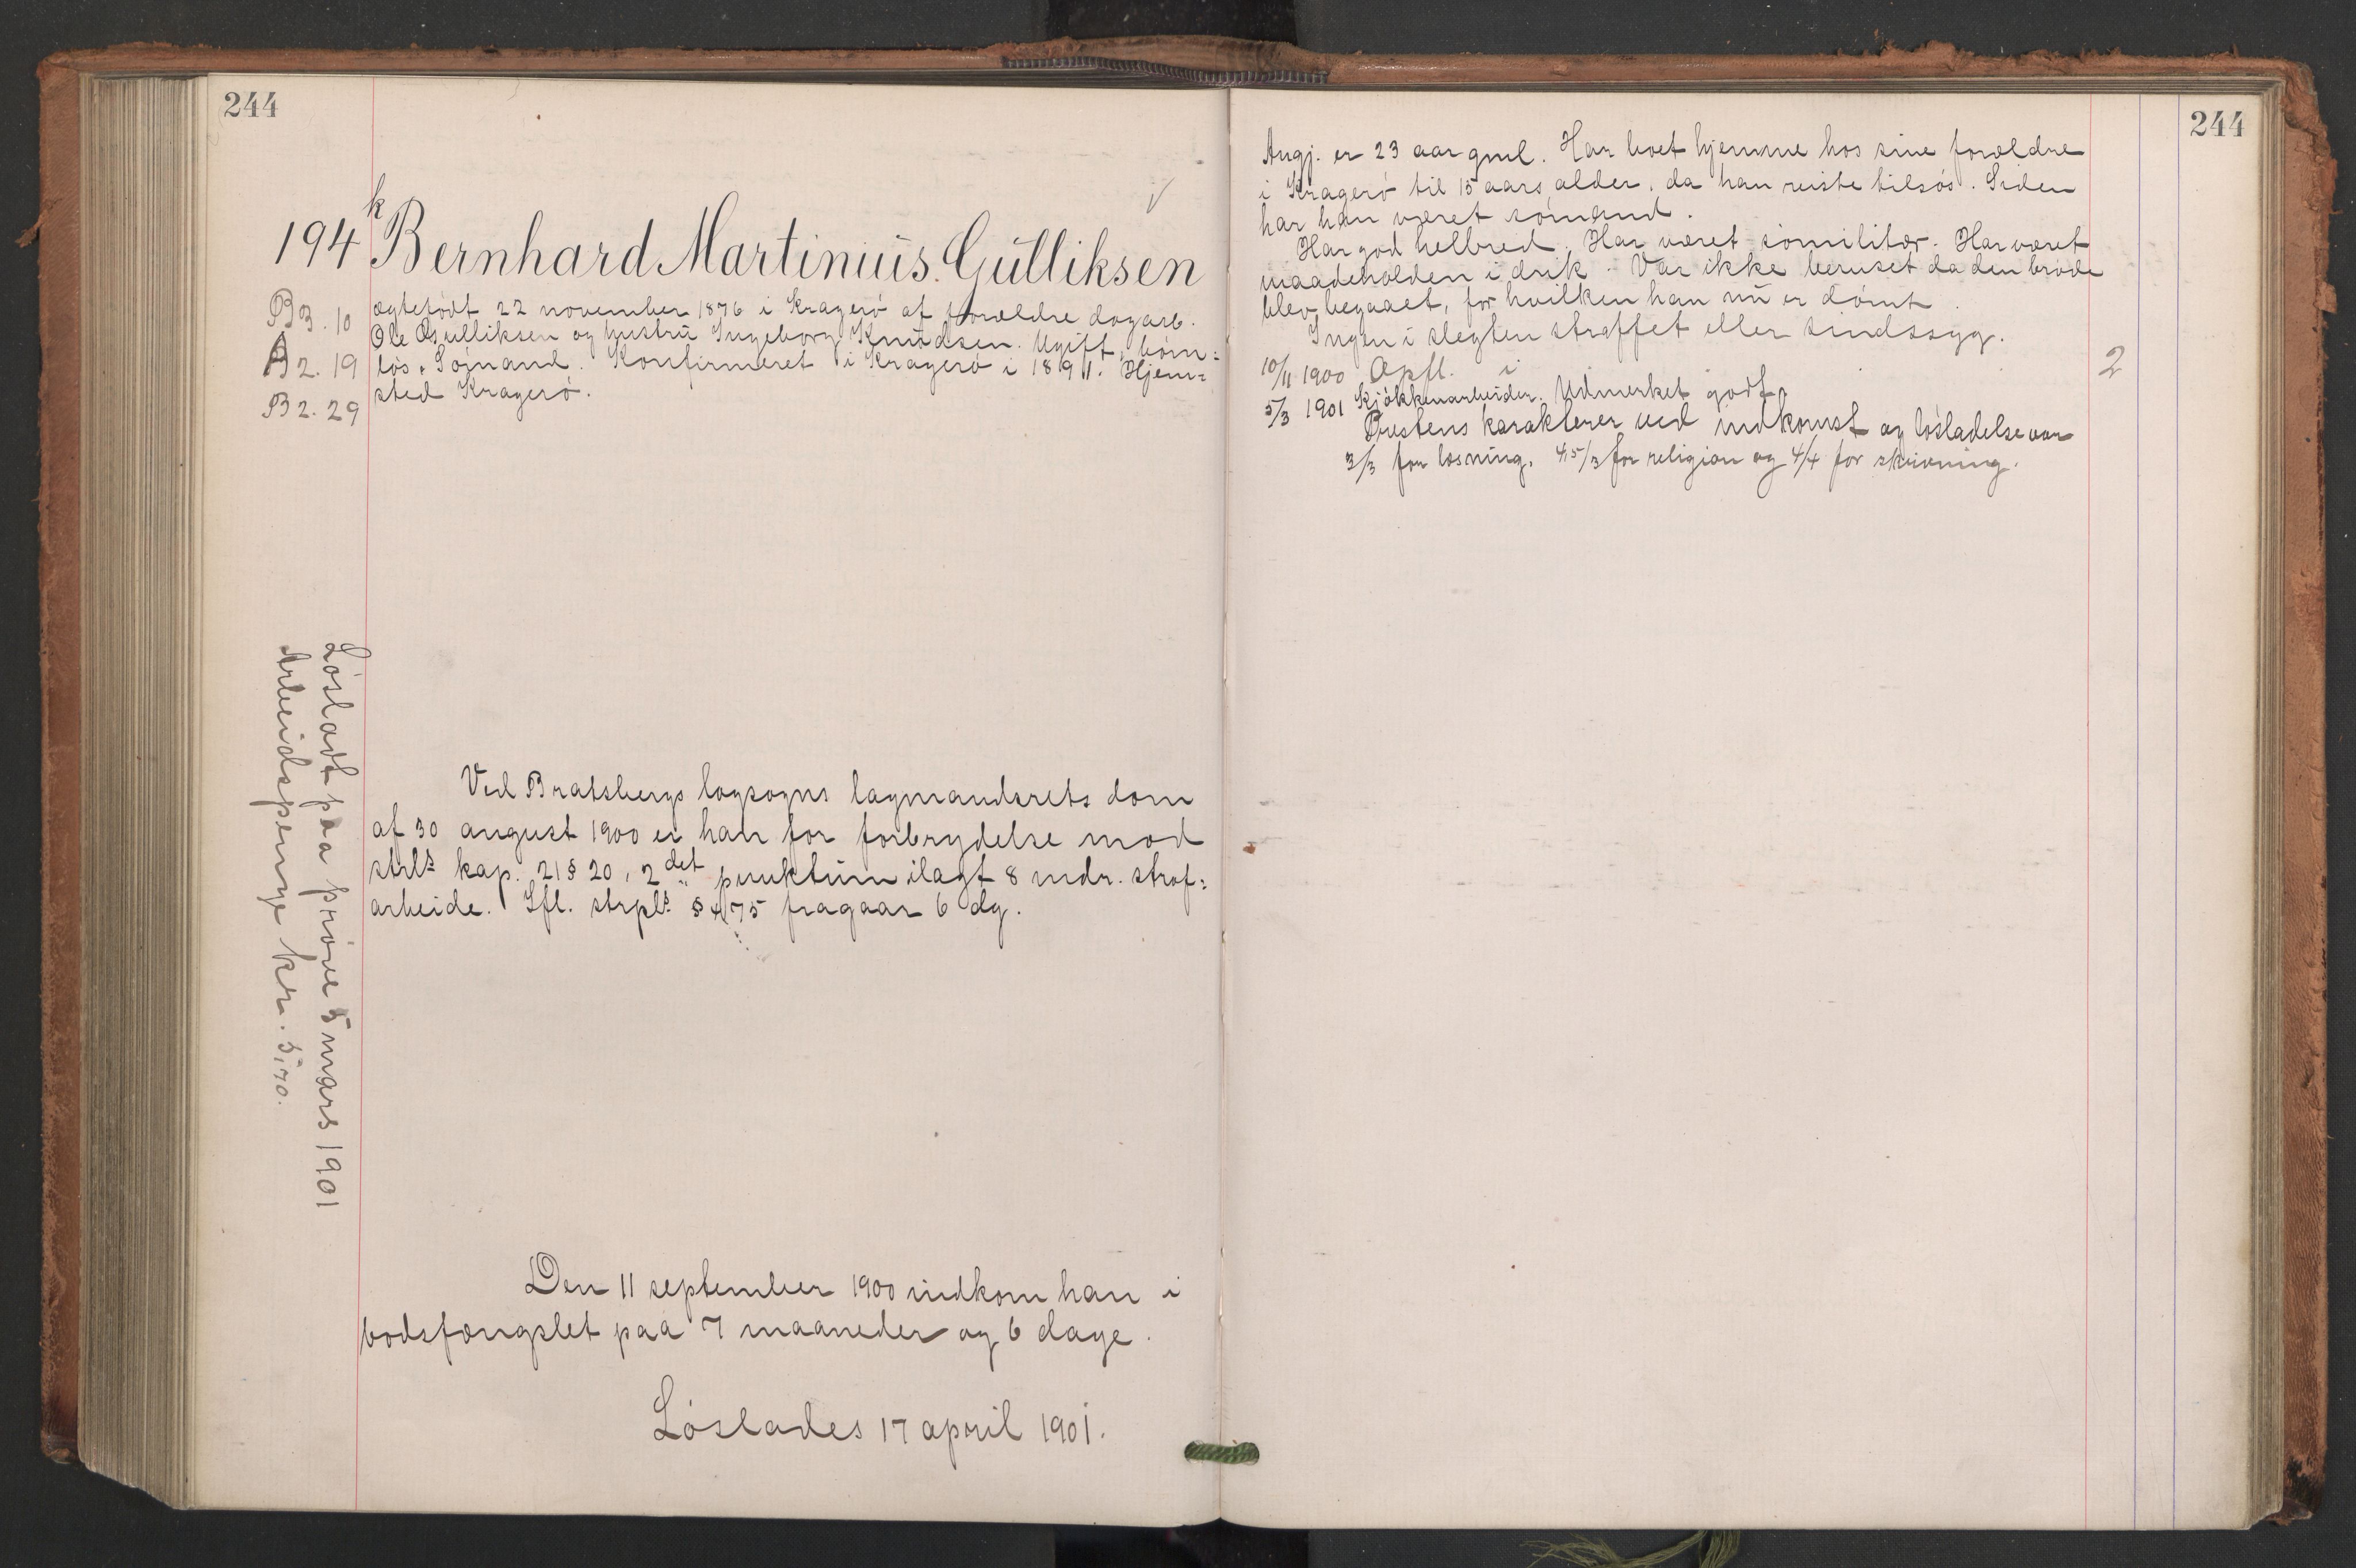 244
k
194 Bernhard Martinius Gulliksen
B3. 10
B2. 19
B2. 29
ægtefødt 22 november 1876 i Kragerö af forældre dagarb.
Ole Gulliksen og hustru Ingeborg Knudsen. Ugift, börn-
lös. Sömand. Konfirmeret i Kragerö i 1891. Hjem-
sted Kragerö.
Lösladt paa pröve 5 mars 1901
Arbeidspenge kr. 5,70.
Ved Bratsbergs lagsogns lagmandsrets dom
af 30 august 1900 er han for forbrydelse mod
strls kap. 21 § 20, 2det punktum ilagt 8 mdr. straf-
arbeide. Ifl. strpls § 475 fragaar 6 dg.
Den 11 september 1900 indkom han i
bodsfængslet paa 7 maaneder og 6 dage.
Löslades 17 april 1901.
244
Angj. er 23 aar gml. Har boet hjemme hos sine forældre
i Kragerö til 15 aars alder, da han reiste tilsös. Siden
har han været sömand.
Har god helbred. Har været sömilitær. Har været
maadeholden i drik. Var ikke beruset da den bröde
blev begaaet, for hvilken han nu er dömt.
Ingen i slegten straffet eller sindssyg.
10/11 1900 Opfl. i
2
5/3 1901 Kjökkenarbeider. Udmerket godt.
Prestens karakterer ved indkomst og lösladelse var
3/3 for læsning, 4,5/3 for religion og 4/4 for skrivning.